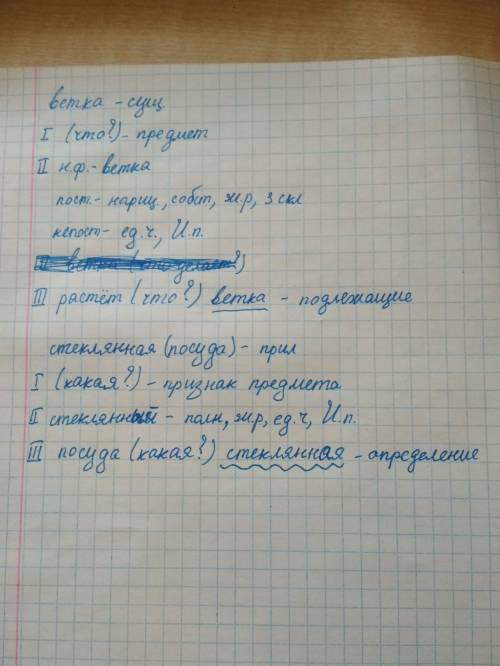 ветка - сущ.
I (что?) - предмет
II н.ф. - ветка
пост. - нариц., собст, ж.р, 3 скл
непост - ед.ч., И.п.
III растёт (что?) ветка - подлежащие
стеклянная (посуда) - прил
I (какая?) - признак предмета
II стеклянный - полн, ж.р, ед.ч, И.п.
III посуда (какая?) стеклянная - определение